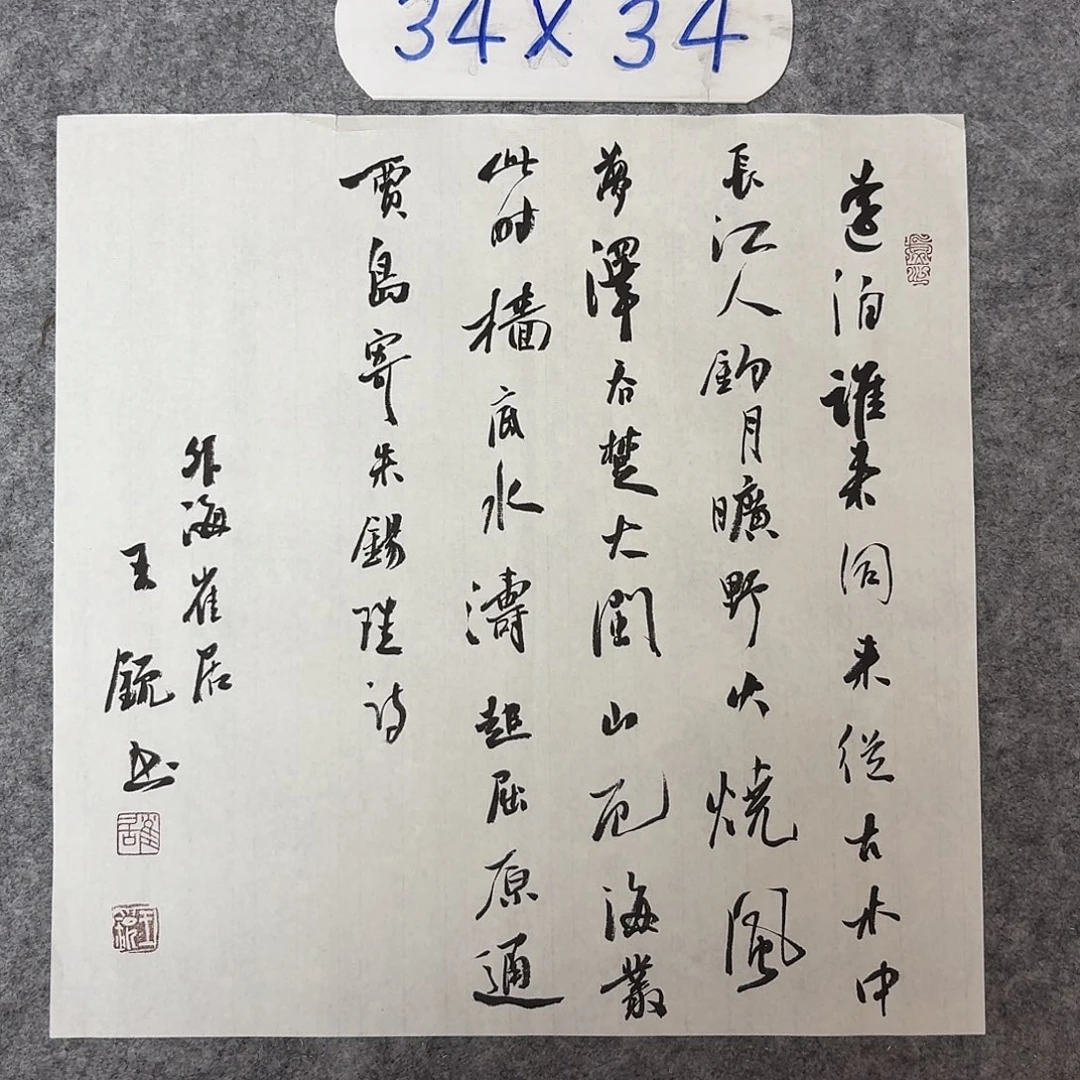 34X34
遠泊誰来同来從古木中
長江人釣月曠野火燒風
夢澤吞楚大閩山厄海叢
此时檣底水濤起屈原通
賈島寄朱錫珪詩
外海崔居
王鋭书
崔居